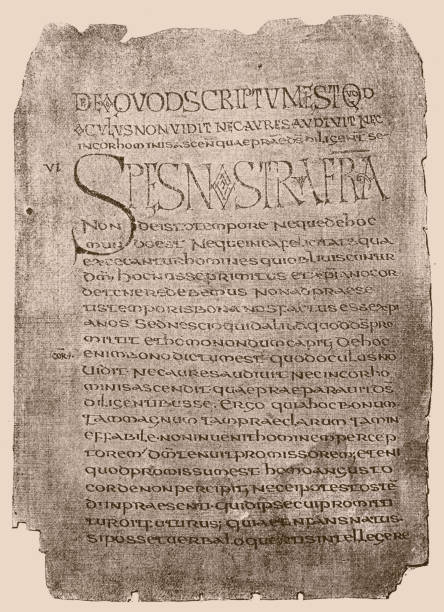 DE EO QVOD SCRIPTVM EST QVOD
OCVLVS NON VIDIT NEC AVRES AVDIVIT NEC
IN COR HOMINIS ASCEN QVAE PRAE DS DILIGENT SE
VI SPES NOSTRA FRA
NON DE ISTO TEMPORE NEQUE DE HOC
MUNDO EST NEQUE IN EA FELICITATE QUA
EXCECANTUR HOMINES QUI OBLIUISCUNTUR
DM̄ HOC NOSSE PRIMITUS ET XPIANO COR
DE TENERE DEBEMUS NON AD PRAESE
TIS TEMPORIS BONA NOS FACTOS ESSE XPI
ANOS SED NESCIO QUID ALIUT QUOD DS PRO
MITTIT ET HOMO NONDUM CAPIT; DE HOC
ENIM BONO DICTUM EST QUOD OCULUS NO
UIDIT NEC AURES AUDIUIT NEC IN COR HO
MINIS ASCENDIT QUAE PRAEPARAUIT DS
DILIGENTIB SE. ERGO QUIA HOC BONUM
TAM MAGNUM TAM PRAECLARUM TAM IN
EFFABILE NON INUENIT HOMINEM PERCEP
TOREM DM̄ TENUIT PROMISSOREM; ETENI
QUOD PROMISSUM EST HOMO ANGUSTO
CORDE NON PERCIPIT; NEC EI POTEST OSTE
DI IN PRAESENTI QUID IPSE CUI PROMITTI
TUR SIT FUTURUS; QUIA ET INFANS NATUS
SI POSSET UERBA LOQUENTIS INTELLEGERE